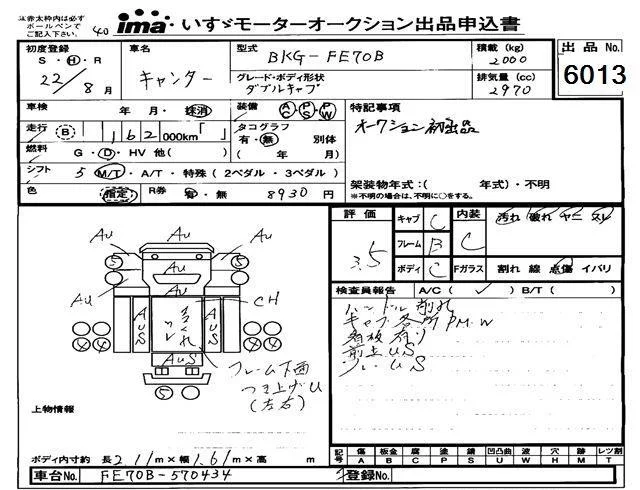 ※赤太枠内は必ず
ボールペンで
ご記入下さい。
40
ima いすゞモーターオークション出品申込書
初度登録
S ・ H ・ R
22/8月
車名
キャンター
型式
BKG-FE70B
グレード・ボディ形状
ダブルキャブ
積載 (kg)
2000
排気量 (cc)
2970
出 品 No.
6013
車検
年 ・ 月 ・ 抹消
装備
AC PS PW
特記事項
オークション初出品
走行 B 162 000km「 」
タコグラフ
有 ・ 無 別体
( 年 月)
燃料
G ・ D ・ HV 他( )
シフト
5 M/T ・ A/T ・ 特殊 (2ペダル ・ 3ペダル)
架装物年式:( 年式)・不明
※不明の場合は、不明に○をする。
色
指定
R券 有・無 8930 円
評 価
3.5
キャブ C
フレーム B
ボディ C
内装
C
Fガラス
汚れ 破れ ヤニ スレ
割れ 線 点傷 イバリ
検査員報告 A/C( ✓ ) B/T( )
ハンドル削れ
キャブ各所P M W
看板有り
前上US
フレームS
AU AU AU
AU AU AU
5 5
CH
AUS AUS
AUS
4 4 4 4
5
フレーム下面
つき上げU
(左右)
上物情報
ボディ内寸約 長2.11m×幅1.61m×高 m
記号 傷 板金 腐 塗 錆 凹凸曲 波 穴 跡 レツ割
A B C P S U W H M T
車台No. FE70B-570434
登録No.